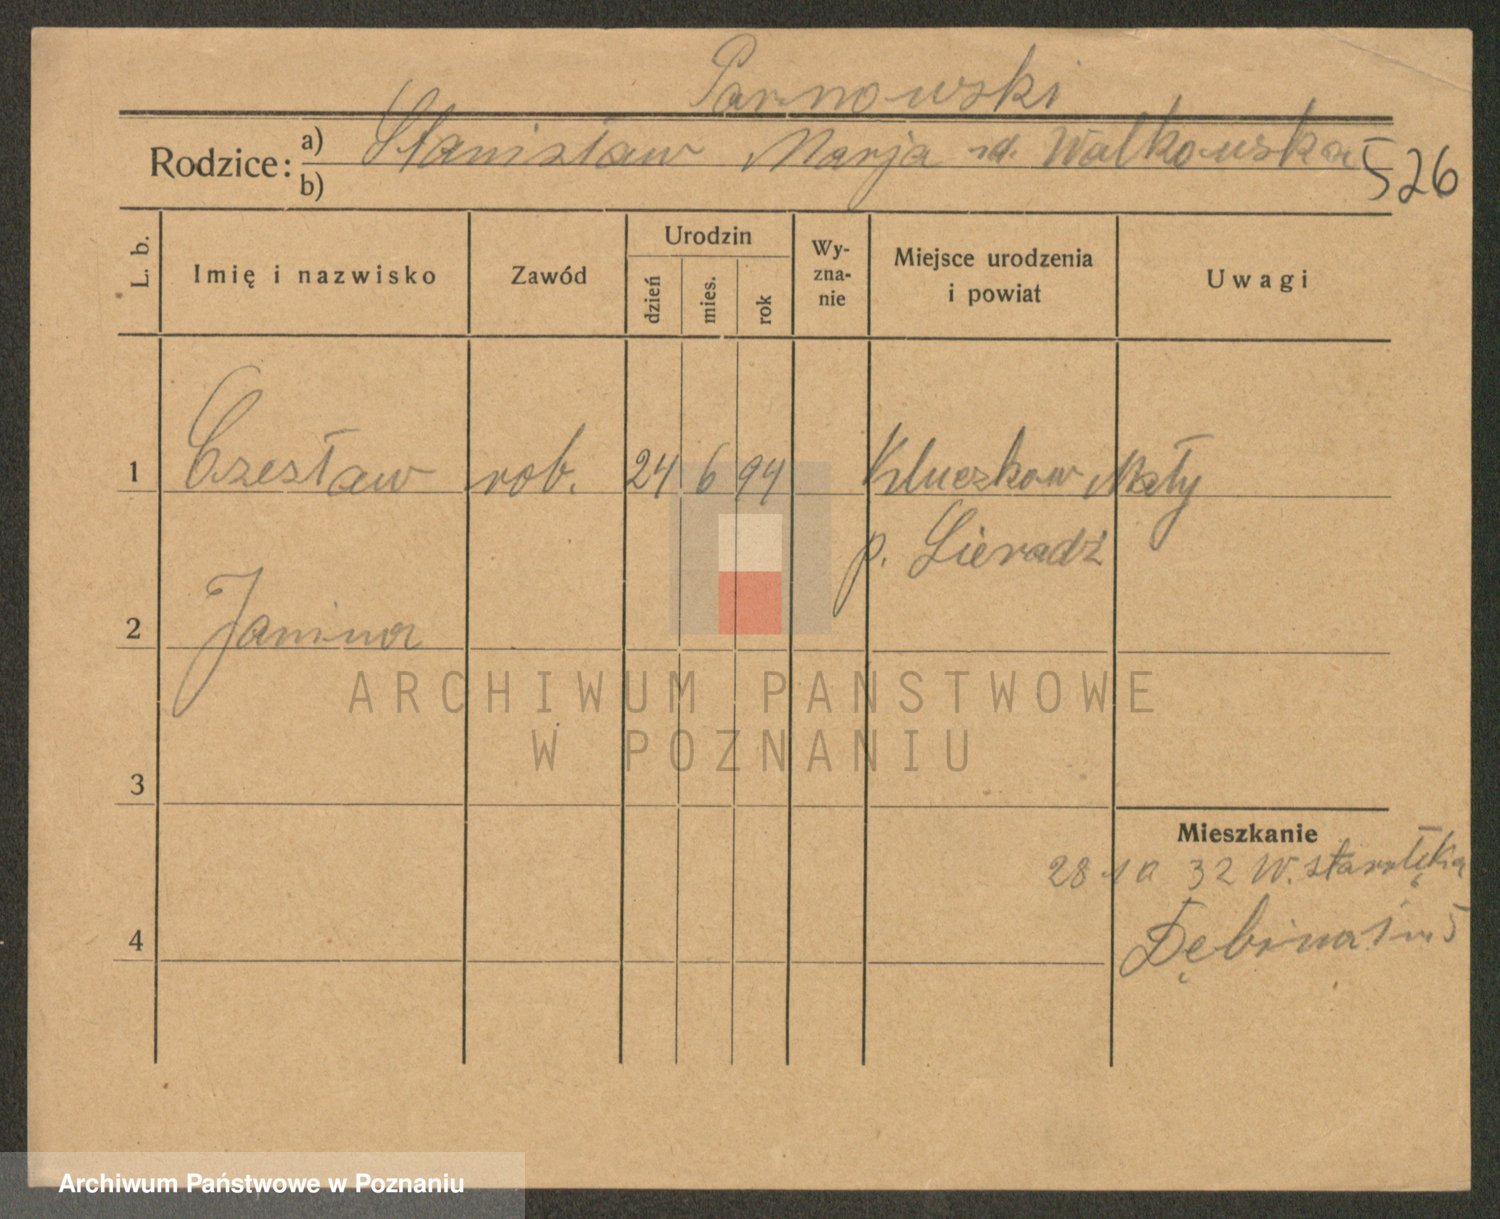 Parnowski
Rodzice: a) Stanisław Marja zd. Walkowska 526
b)
L. b. Imię i nazwisko Zawód Urodzin dzień mies. rok Wy-zna-nie Miejsce urodzenia i powiat Uwagi
1 Czesław rob. 24 6 94 Kluczkow Mały
p. Sieradź
2 Janina
ARCHIWUM PAŃSTWOWE
W POZNANIU
3
Mieszkanie
28 10 32 W. starołęka
4 Dębina 1 m 5
Archiwum Państwowe w Poznaniu